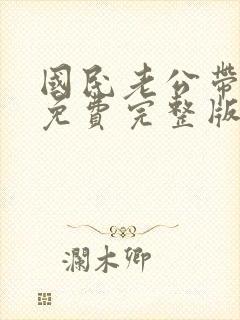 國民老公帶
免費完整版
瀾木卿